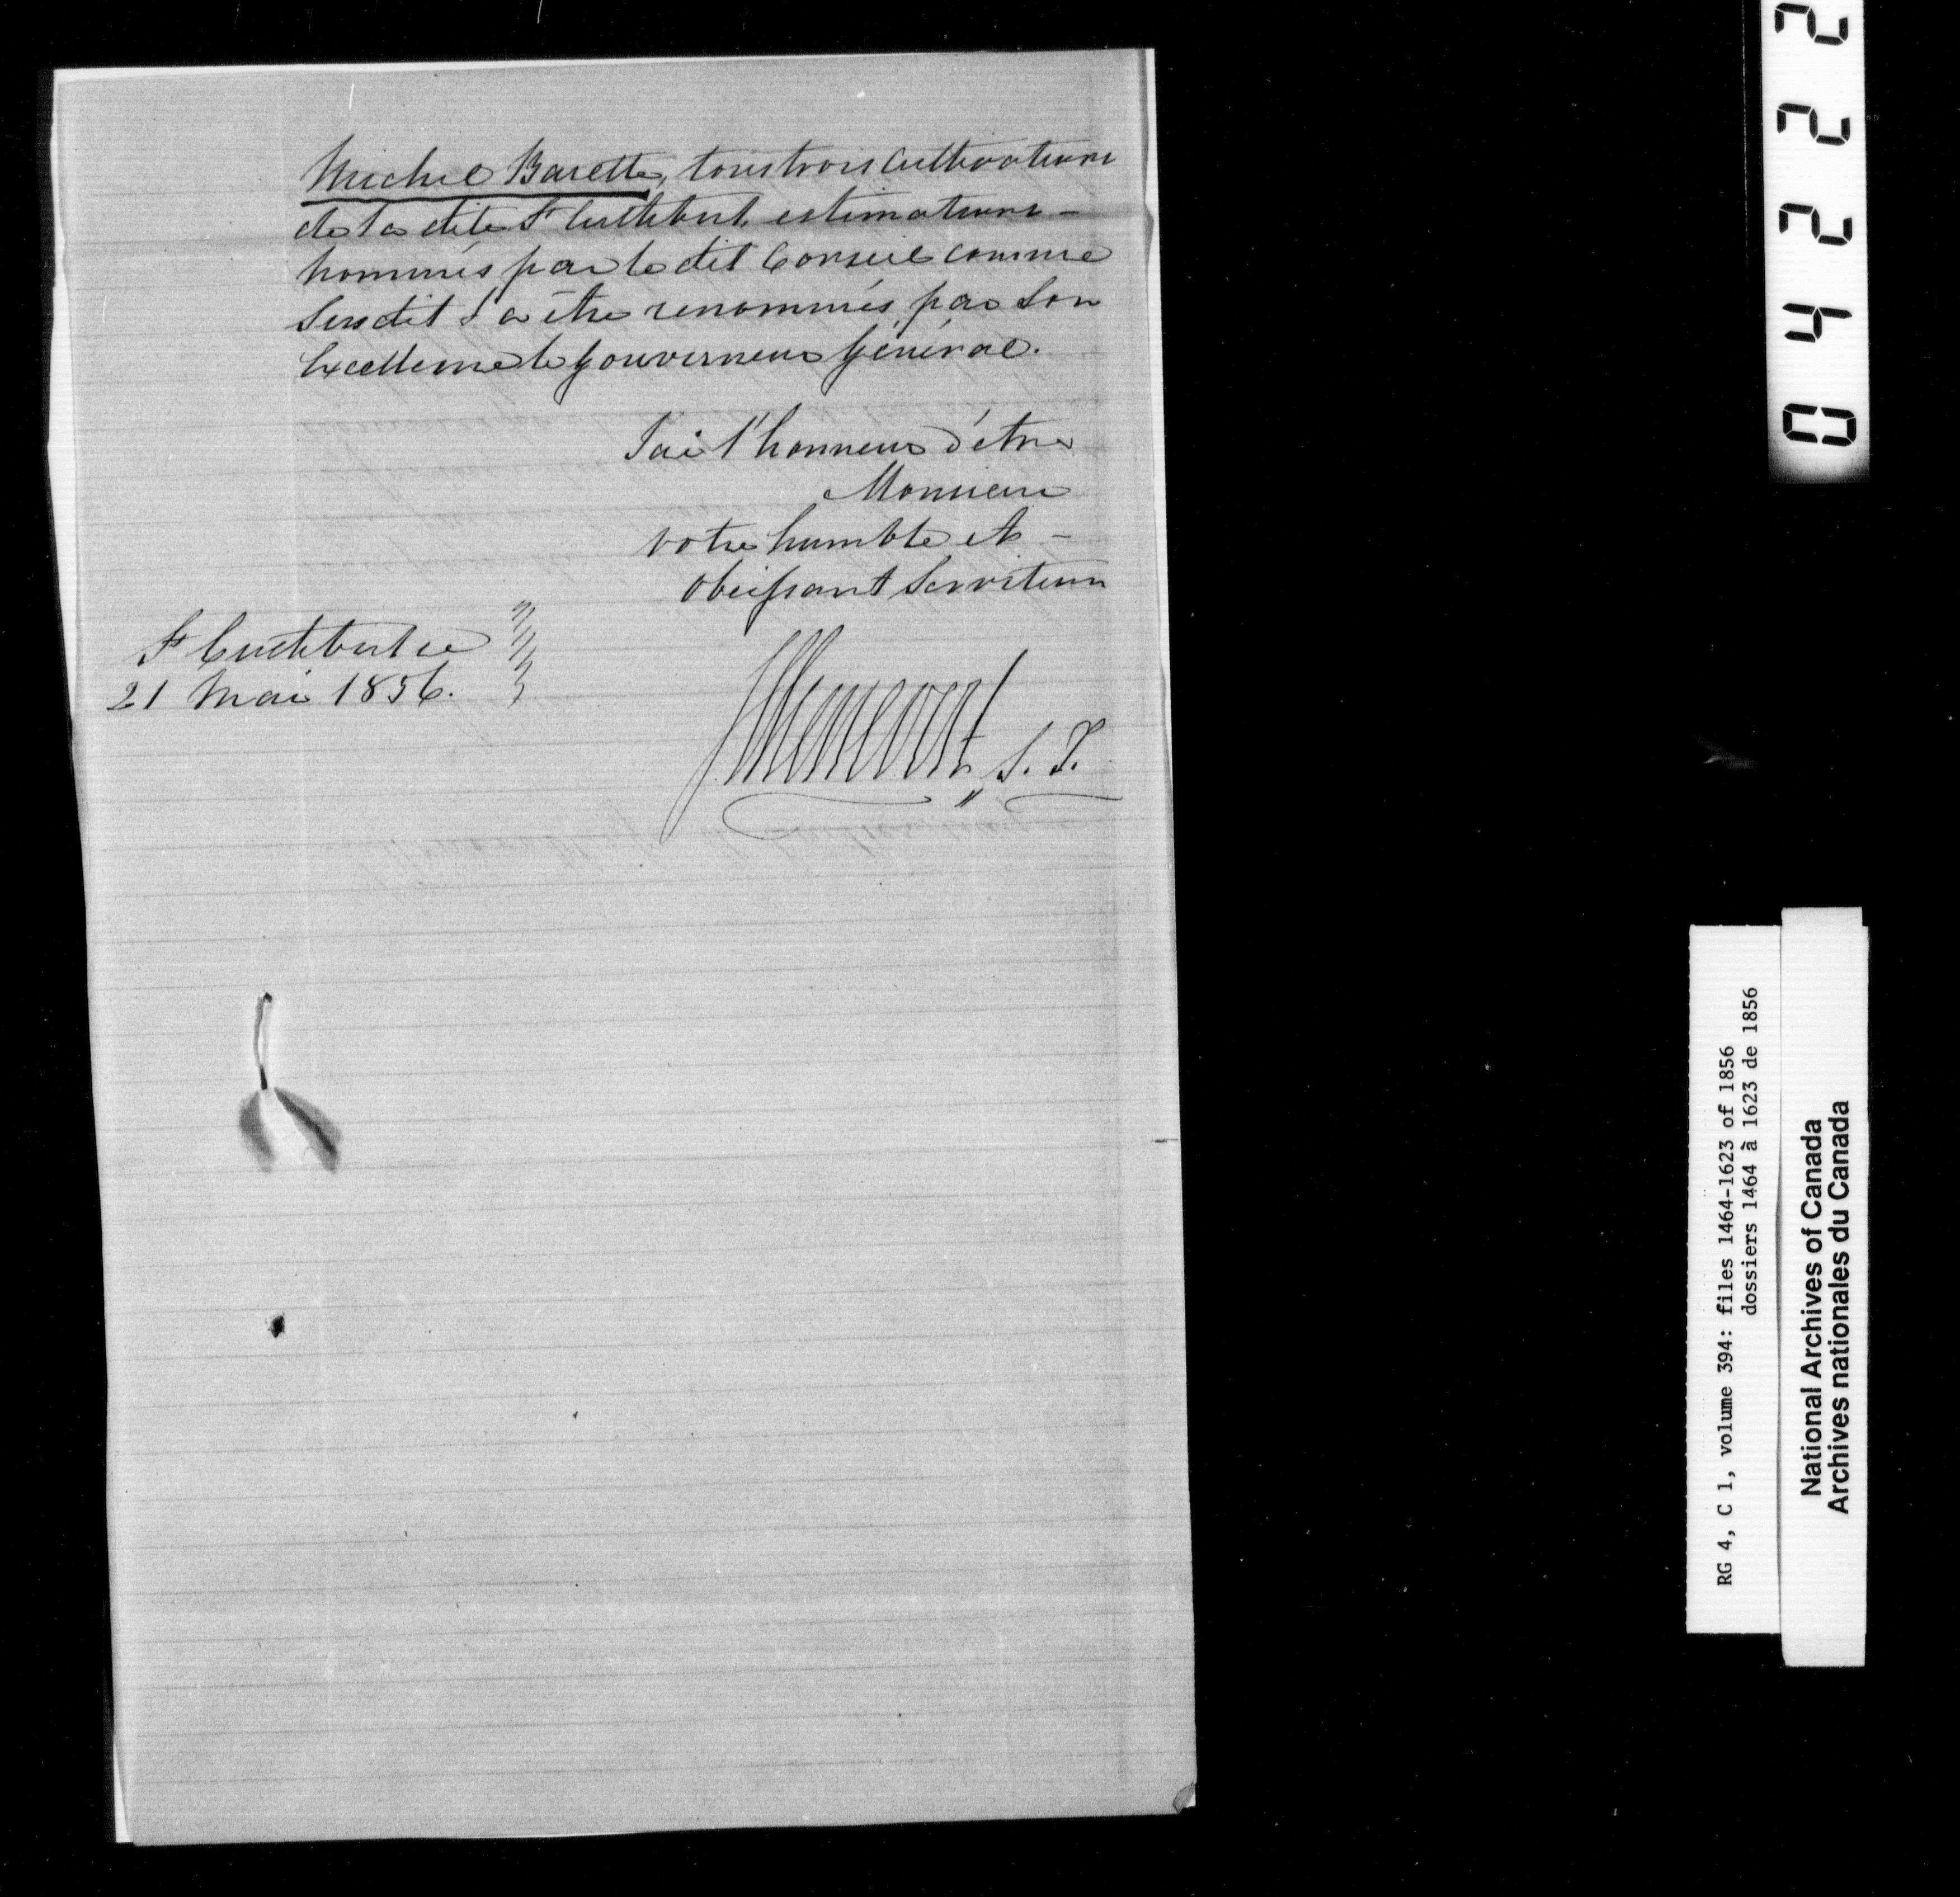 Michel Barette, tous trois cultivateurs
de la dite St Cuthbert, estimateurs -
nommés par le dit Conseil comme
susdit & a être renommés par Son
Excellence le Gouverneur Général.
J'ai l'honneur d'être
Monsieur
votre humble et -
obeissant Serviteur
St Cuthbert ce
21 Mai 1856.
Chenevert, S. T.
04222
RG 4, C 1, volume 394: files 1464-1623 of 1856
dossiers 1464 à 1623 de 1856
National Archives of Canada
Archives nationales du Canada